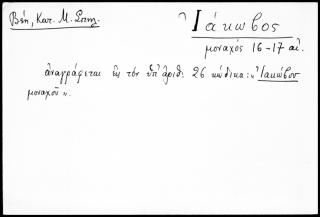 Βέη, Κατ. Μ. Σπηλ.
Ἰάκωβος
μοναχός 16-17 αἰ.
ἀναγράφεται εἰς τόν ὑπ' ἀριθ. 26 κώδικα: "Ἰακώβου
μοναχοῦ".